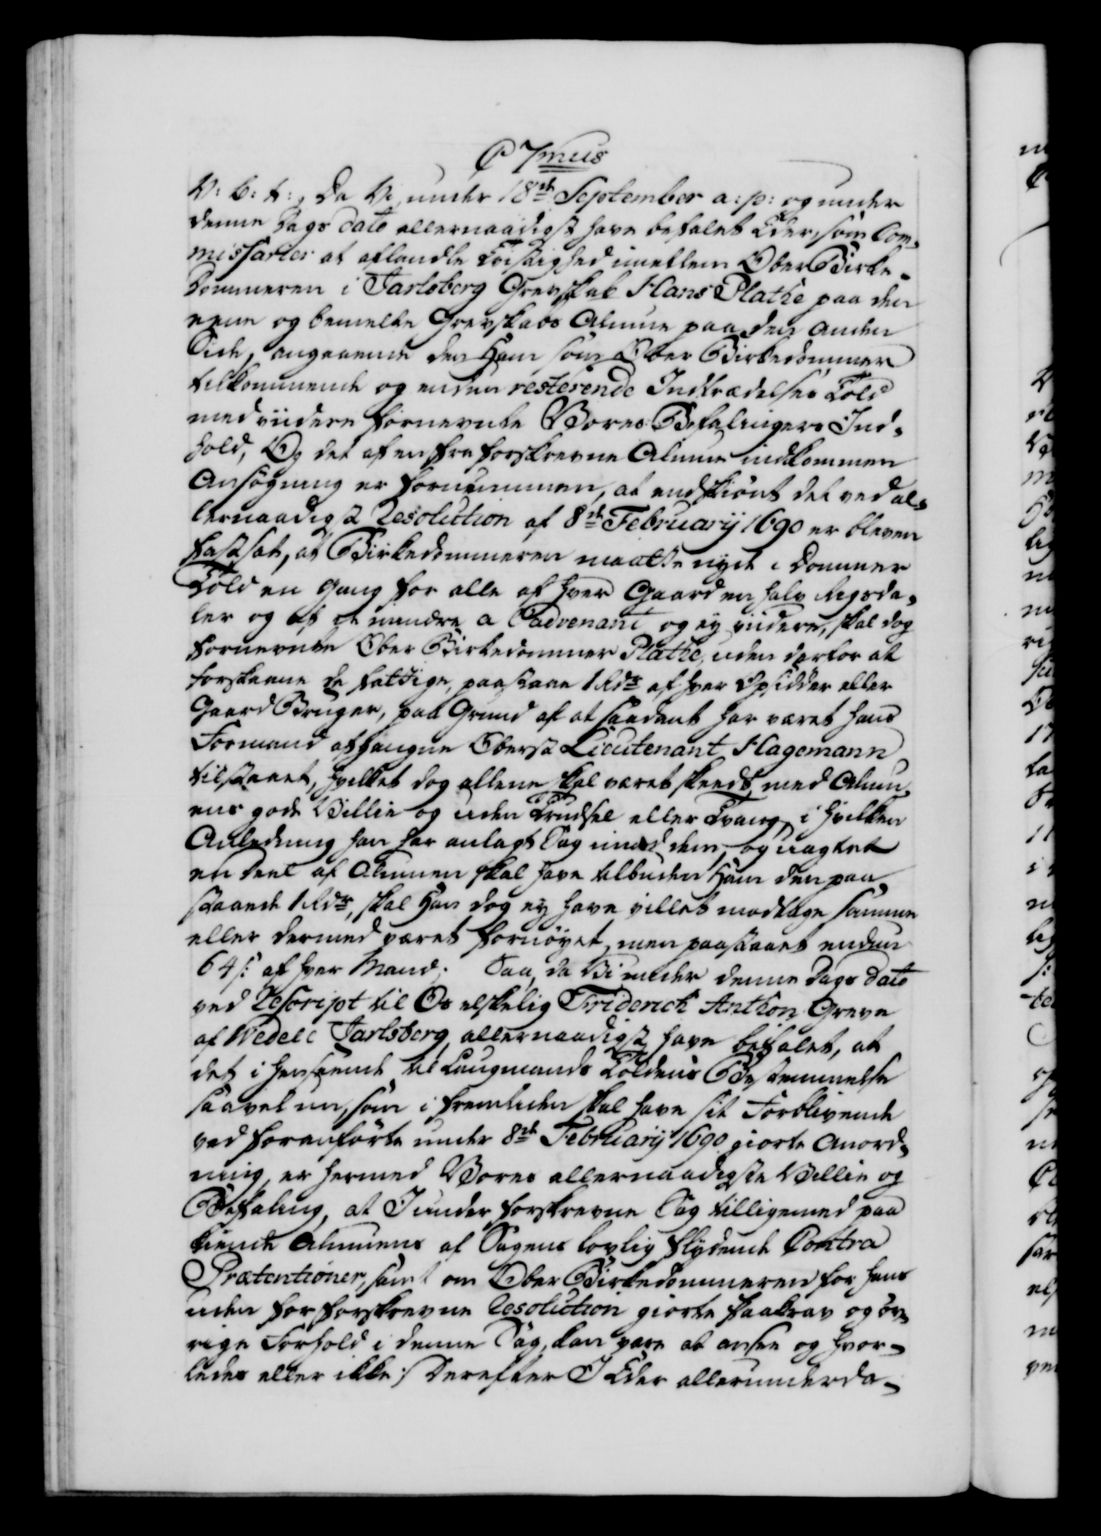 C 7mus
V: b: t:, Da Vi under 18de September a: p: og under
denne Dags dato allernaadigst have befalet Eder, som Com-
missarier at aflandle Tvistighed imellem Ober Birke-
dommeren i Jarlsberg Grevskab Hans Plathe paa den
eene og bemelte Grevskabs Almue paa den anden
Side, angaaende den Ham som Ober Birkedommer
tilkommende og endnu resterende Indtrædelses Told
med viidere fornevnte Vores Befalingers Ind-
hold, Og det af en fra forskrevne Almue indkommen
Ansøgning er fornummen, at endskiønt det ved al-
lernaadigst Resolution af 8de Februarij 1690 er bleven
fastsat, at Birkedommeren maatte nyde i Dommer
Told en gang for alle af hver Gaard en halv Rigsda-
ler og af et mindre a l'advenant og ey viidere, skal dog
fornevnte Ober Birkedommer Plathe, uden derfor at
forskaane de fattige, paastaae 1 Rdr af hver Opsidder eller
Gaard Bruger, paa Grund af at saadant har været hans
Formand afgangne Oberst Lieutenant Hagemann
tilstaaet, hvilket dog allene skal været skeedt med Almu-
ens gode Villie og uden Trudsel eller Tvang, i hvilken
Anledning han har anlagt Sag imod dem, og uagtet
en deel af Almuen skal have tilbuden Ham den paa-
staaede 1 Rdr, skal Han dog ey have villet modtage samme
eller dermed været fornøyet, men paastaaet endnu
64 s: af hver Mand; Saa, da Vi under denne Dags dato
ved Rescript til Os elskelig Friderich Anthon Greve
af Wedel c Jarlsberg allernaadigst have befalet, at
det i henseende til Laugmands Toldens Bestemmelse
saavel nu, som i fremtiden skal have sit Forblivende
ved foranførte under 8de Februarij 1690 giorte Anord-
ning, er hermed Vores allernaadigste Villie og
Befaling, at I under forskrevne Sag tilligemed paa
kiende Almuens af Sagens lovlig flydende Contra
Prætentioner, samt om Ober Birkedommeren for hans
uden for forskrevne Resolution giorte Paakrav og øv-
rige Forhold i denne Sag, kan være at ansee og hvor-
ledes eller ikke :/ Derefter I Eder allerunderda-